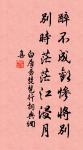 醉不成歡慘將別
別時茫茫江浸月
白居易琵琶行詩與調
真